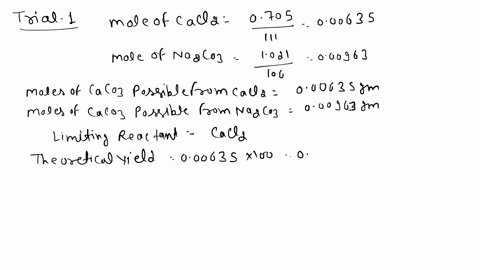 Trial-1 mole of CaCl2 = 0.705/111 = 0.00635
mole of Na2CO3 = 1.021/106 = 0.00963
moles of CaCO3 Possible from CaCl2 = 0.00635 gm
moles of CaCO3 Possible from Na2CO3 = 0.00963 gm
Limiting Reactant :- CaCl2
Theoretical yield = 0.00635 ×100 = 0.